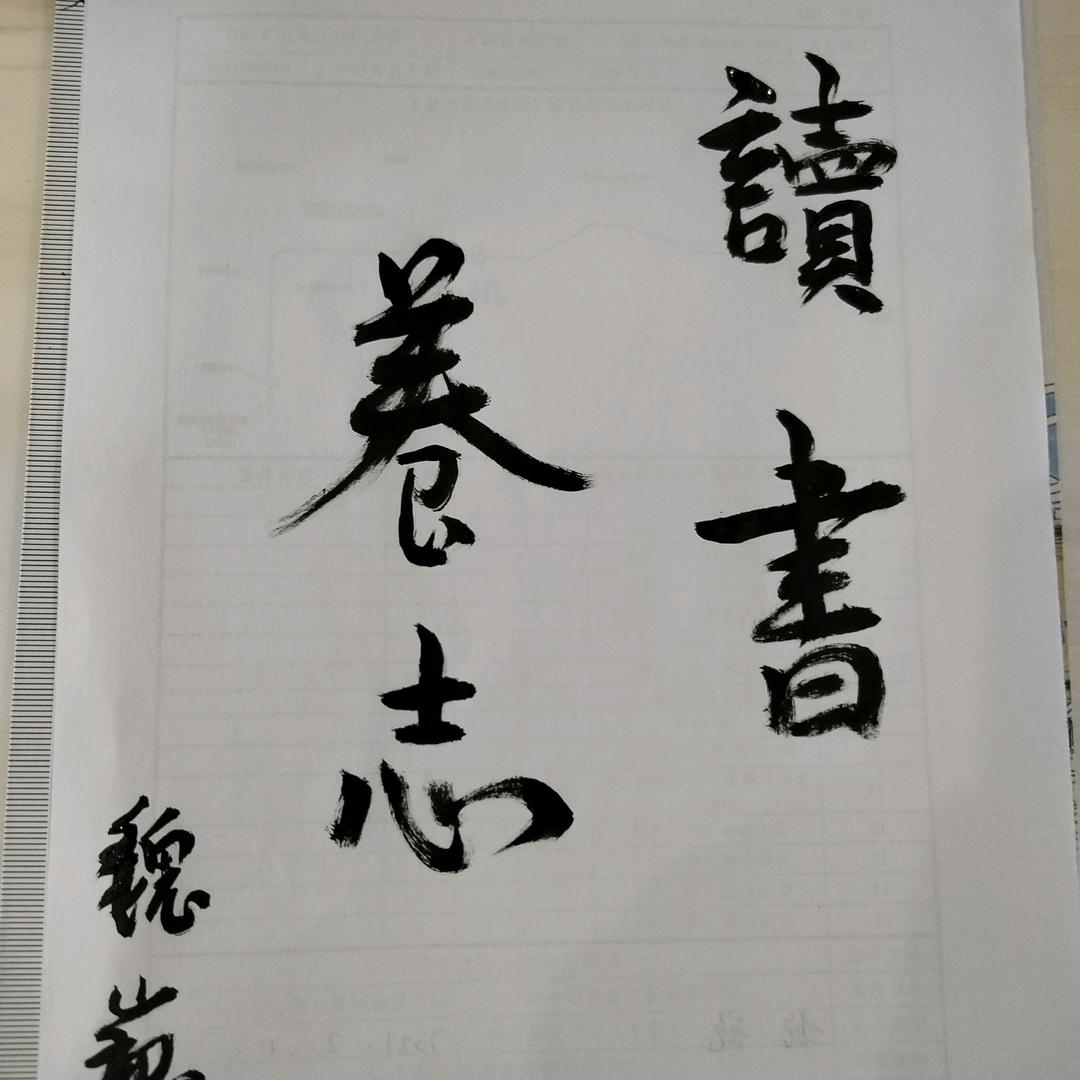 讀書
養志
魏